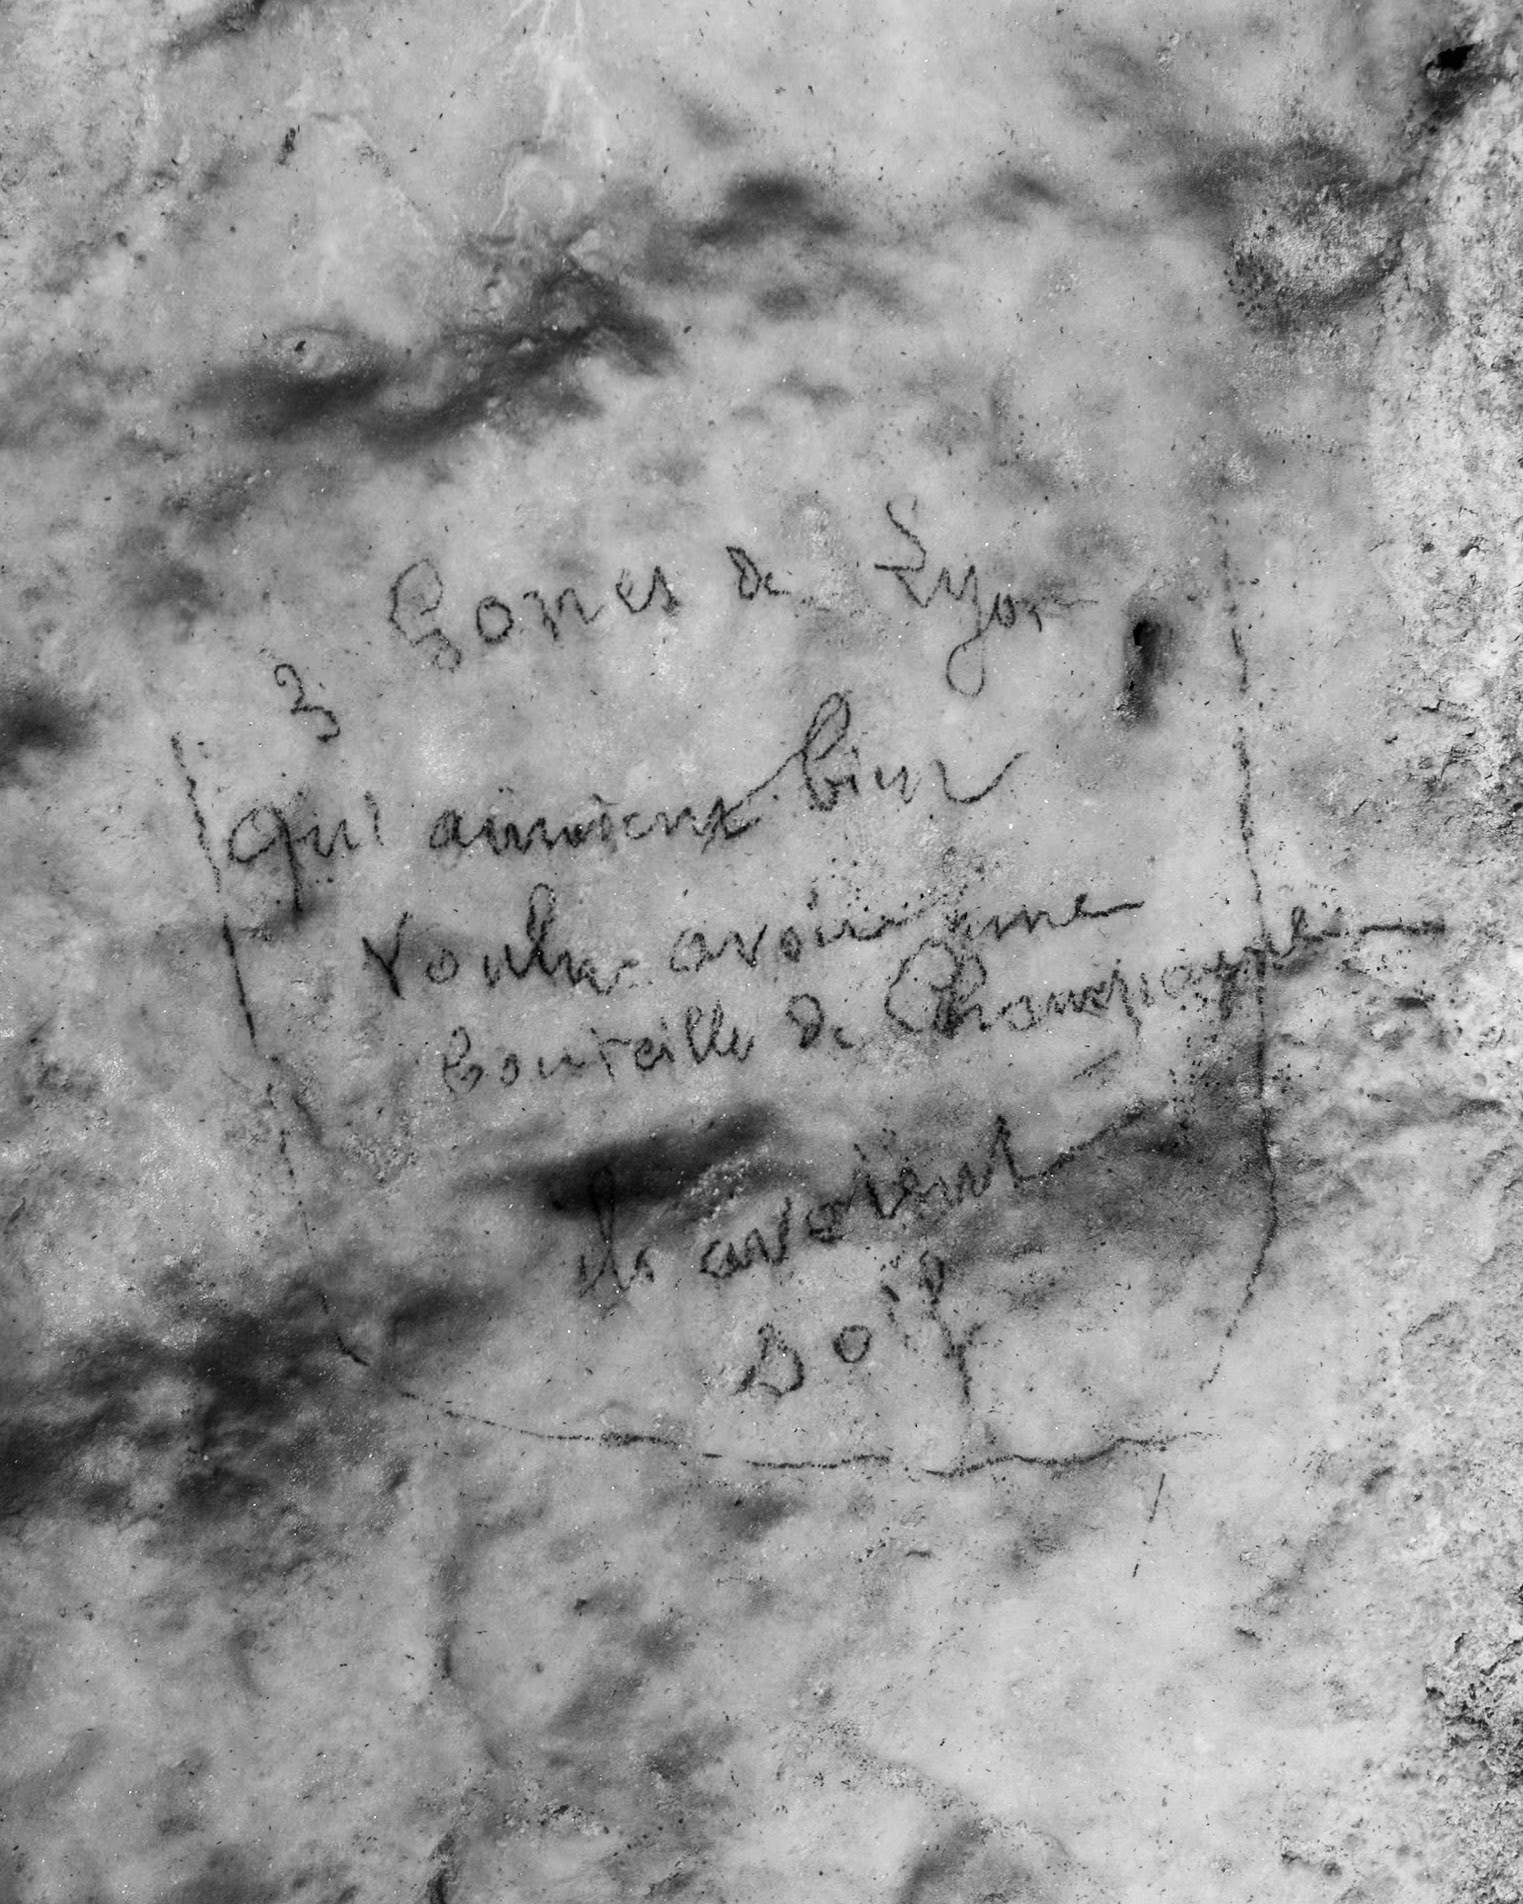 3 Gones de Lyon
qui aimieux bien
voulu avoir une
bouteille de Champagne
ils avoient
soif